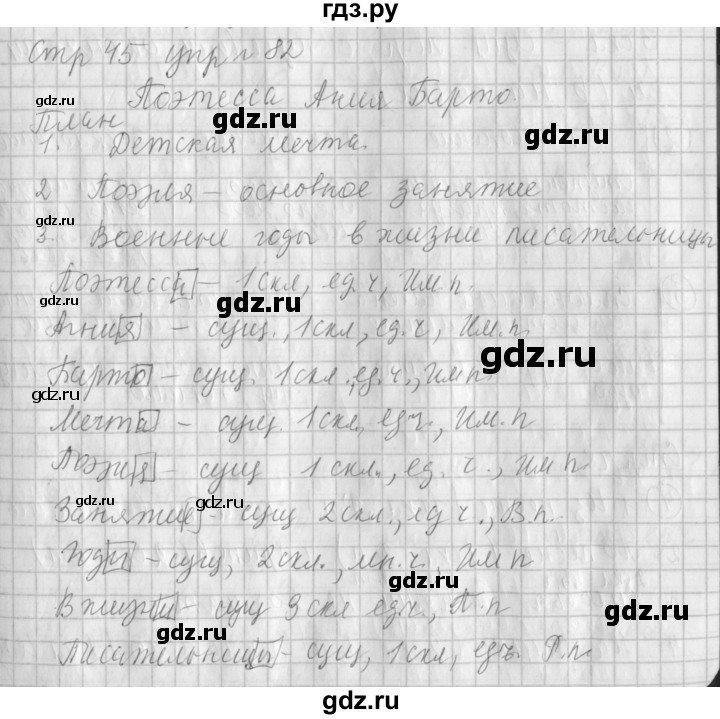 гдз.ру
Стр 45 упр 82
Поэтесса Агния Барто.
План
1. Детская мечта.
2 Поэзия – основное занятие
3. Военные годы в жизни писательницы
Поэтесса – 1 скл, ед.ч, Им.п.
Агния – сущ., 1 скл, ед.ч, Им.п.
Барто – сущ. 1 скл., ед.ч., Им п.
Мечта – сущ. 1 скл, ед ч, Им. п
Поэзия – сущ. 1 скл., ед. ч., Им п.
Занятие – сущ 2 скл., ед ч., В.п.
Годы – сущ, 2 скл., мн.ч, Им п
В жизни – сущ 3 скл ед.ч., П.п
Писательницы – сущ, 1 скл, ед.ч. Р.п.
gdz.ru
gdz.ru
gdz.ru
gdz.ru
gdz.ru
gdz.ru
gdz.ru
gdz.ru
gdz.ru
gdz.ru
gdz.ru
gdz.ru
gdz.ru
gdz.ru